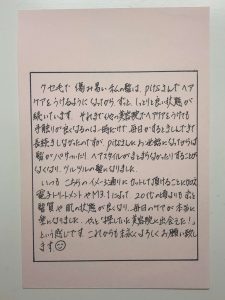 クセ毛で傷み易い私の髪は、pitaさんでヘア
ケアをうけるようになってから、ずっと、しっとりと良い状態が
続いています。それまで他の美容院でヘアケアをうけても
手触りが良くなるのは一時だけで、毎日がまとまらんで
長続きしなかったのですが、pitaさんにお世話になってからは
髪がパサついたり、ヘアスタイルがまとまらなかったりすることが
なくなり、ツルツルの髪になりました。
いつも こちらのイメージ通りにカットして頂けることにプラス
電子トリートメントや によって、20代の頃よりもずっと
髪質や肌の状態が良くなり、毎日のケアが本当に
楽になりました。やっと探していた美容院に出会えた！
という感じです。これからも末永くよろしくお願い致し
ます☺